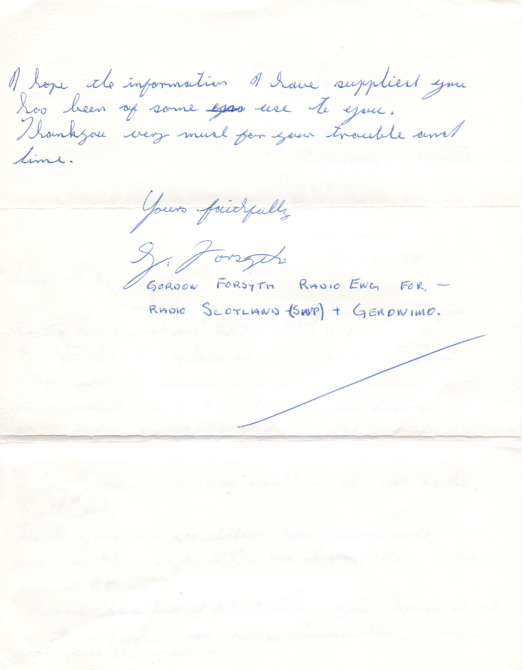 I hope the information I have supplied you
has been of some use to you.
Thankyou very much for your trouble and
time.
Yours faithfully
G. Forsyth
GORDON FORSYTH RADIO ENG FOR. -
RADIO SCOTLAND (SWP) + GERONIMO.